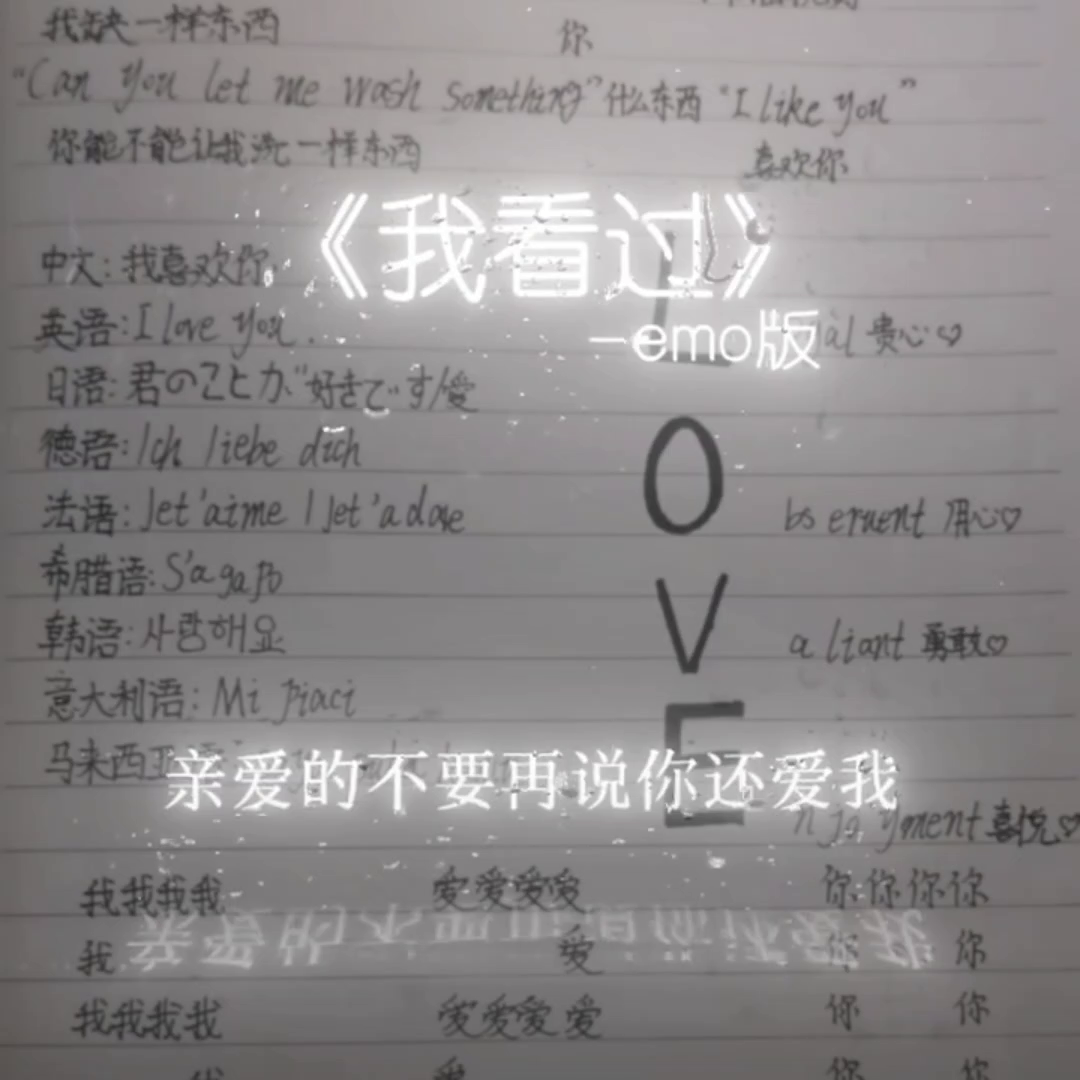 我缺一样东西 你
“Can you let me wash something” 什么东西 “I like you”
你能不能让我洗一样东西 喜欢你
《我看过》
中文:我喜欢你
-emo版
英语:I love you. 贵心♡
日语:君のことが好きです/愛
德语:Ich liebe dich
O
法语:Jet'aime / Jet'adore
bs eruent 用心♡
希腊语:S'agapo
V
韩语:사랑해요
a liant 勇敢♡
意大利语:Mi piaci
E
马来西亚
亲爱的不要再说你还爱我
n joyment 喜悦♡
我我我我 爱爱爱爱 你你你你
亲爱的不要再说你还爱我
我 爱 你 你
我我我我 爱爱爱爱 你 你
我 爱 你 你